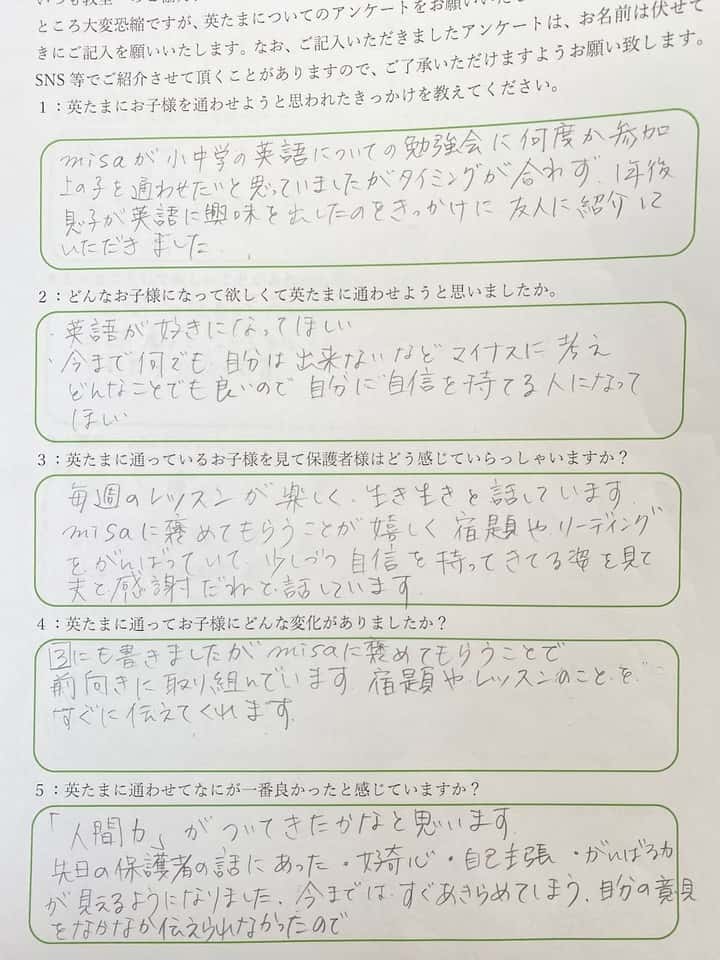 ところ大変恐縮ですが、英たまについてのアンケートをお願いいた
きにご記入を願いいたします。なお、ご記入いただきましたアンケートは、お名前は伏せて
SNS 等でご紹介させて頂くことがありますので、ご了承いただけますようお願い致します。
1：英たまにお子様を通わせようと思われたきっかけを教えてください。
misaが小中学の英語についての勉強会に何度か参加
上の子を通わせたいと思っていましたがタイミングが合わず、1年後
息子が英語に興味を出したのをきっかけに友人に紹介して
いただきました.
2：どんなお子様になって欲しくて英たまに通わせようと思いましたか。
・英語が好きになってほしい
・今まで何でも自分は出来ないなどマイナスに考え
どんなことでも良いので自分に自信を持てる人になって
ほしい
3：英たまに通っているお子様を見て保護者様はどう感じていらっしゃいますか？
毎週のレッスンが楽しく、生き生きと話しています.
misaに褒めてもらうことが嬉しく宿題や、リーディング
をがんばっていて、少しづつ自信を持ってきてる姿を見て
夫と感謝だねと話しています.
4：英たまに通ってお子様にどんな変化がありましたか？
3にも書きましたがmisaに褒めてもらうことで
前向きに取り組んでいます.宿題やレッスンのことを
すぐに伝えてくれます.
5：英たまに通わせてなにが一番良かったと感じていますか？
「人間力」がついてきたかなと思います.
先日の保護者の話にあった・好奇心・自己主張・がんばる力
が見えるようになりました.今まではすぐあきらめてしまう、自分の意見
をなかなか伝えられなかったので